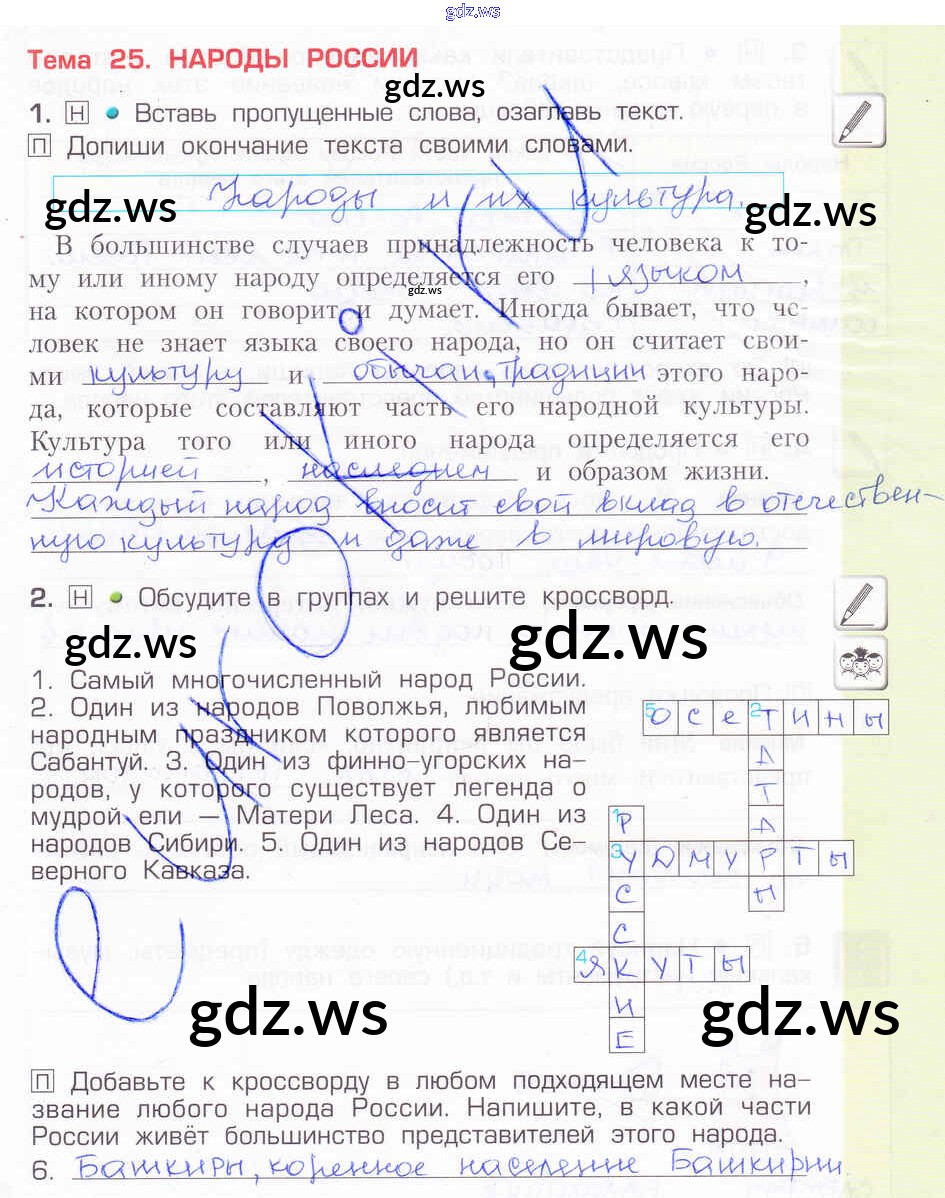 gdz.ws
Тема 25. НАРОДЫ РОССИИ
gdz.ws
1. Н • Вставь пропущенные слова, озаглавь текст.
П Допиши окончание текста своими словами.
Народы и их культура.
gdz.ws gdz.ws
В большинстве случаев принадлежность человека к то-
му или иному народу определяется его языком,
gdz.ws
на котором он говорит и думает. Иногда бывает, что че-
ловек не знает языка своего народа, но он считает свои-
ми культуру и обычаи, традиции этого наро-
да, которые составляют часть его народной культуры.
Культура того или иного народа определяется его
историей, наследием и образом жизни.
Каждый народ вносит свой вклад в отечествен-
ную культуру и даже в мировую.
2. Н • Обсудите в группах и решите кроссворд.
gdz.ws gdz.ws
1. Самый многочисленный народ России.
2. Один из народов Поволжья, любимым
народным праздником которого является
Сабантуй. 3. Один из финно-угорских на-
родов, у которого существует легенда о
мудрой ели — Матери Леса. 4. Один из
народов Сибири. 5. Один из народов Се-
верного Кавказа.
5 осе2тины
татары
1 русские
3 удмурты
4 якуты
gdz.ws gdz.ws
П Добавьте к кроссворду в любом подходящем месте на-
звание любого народа России. Напишите, в какой части
России живёт большинство представителей этого народа.
6. Башкиры, коренное население Башкирии.